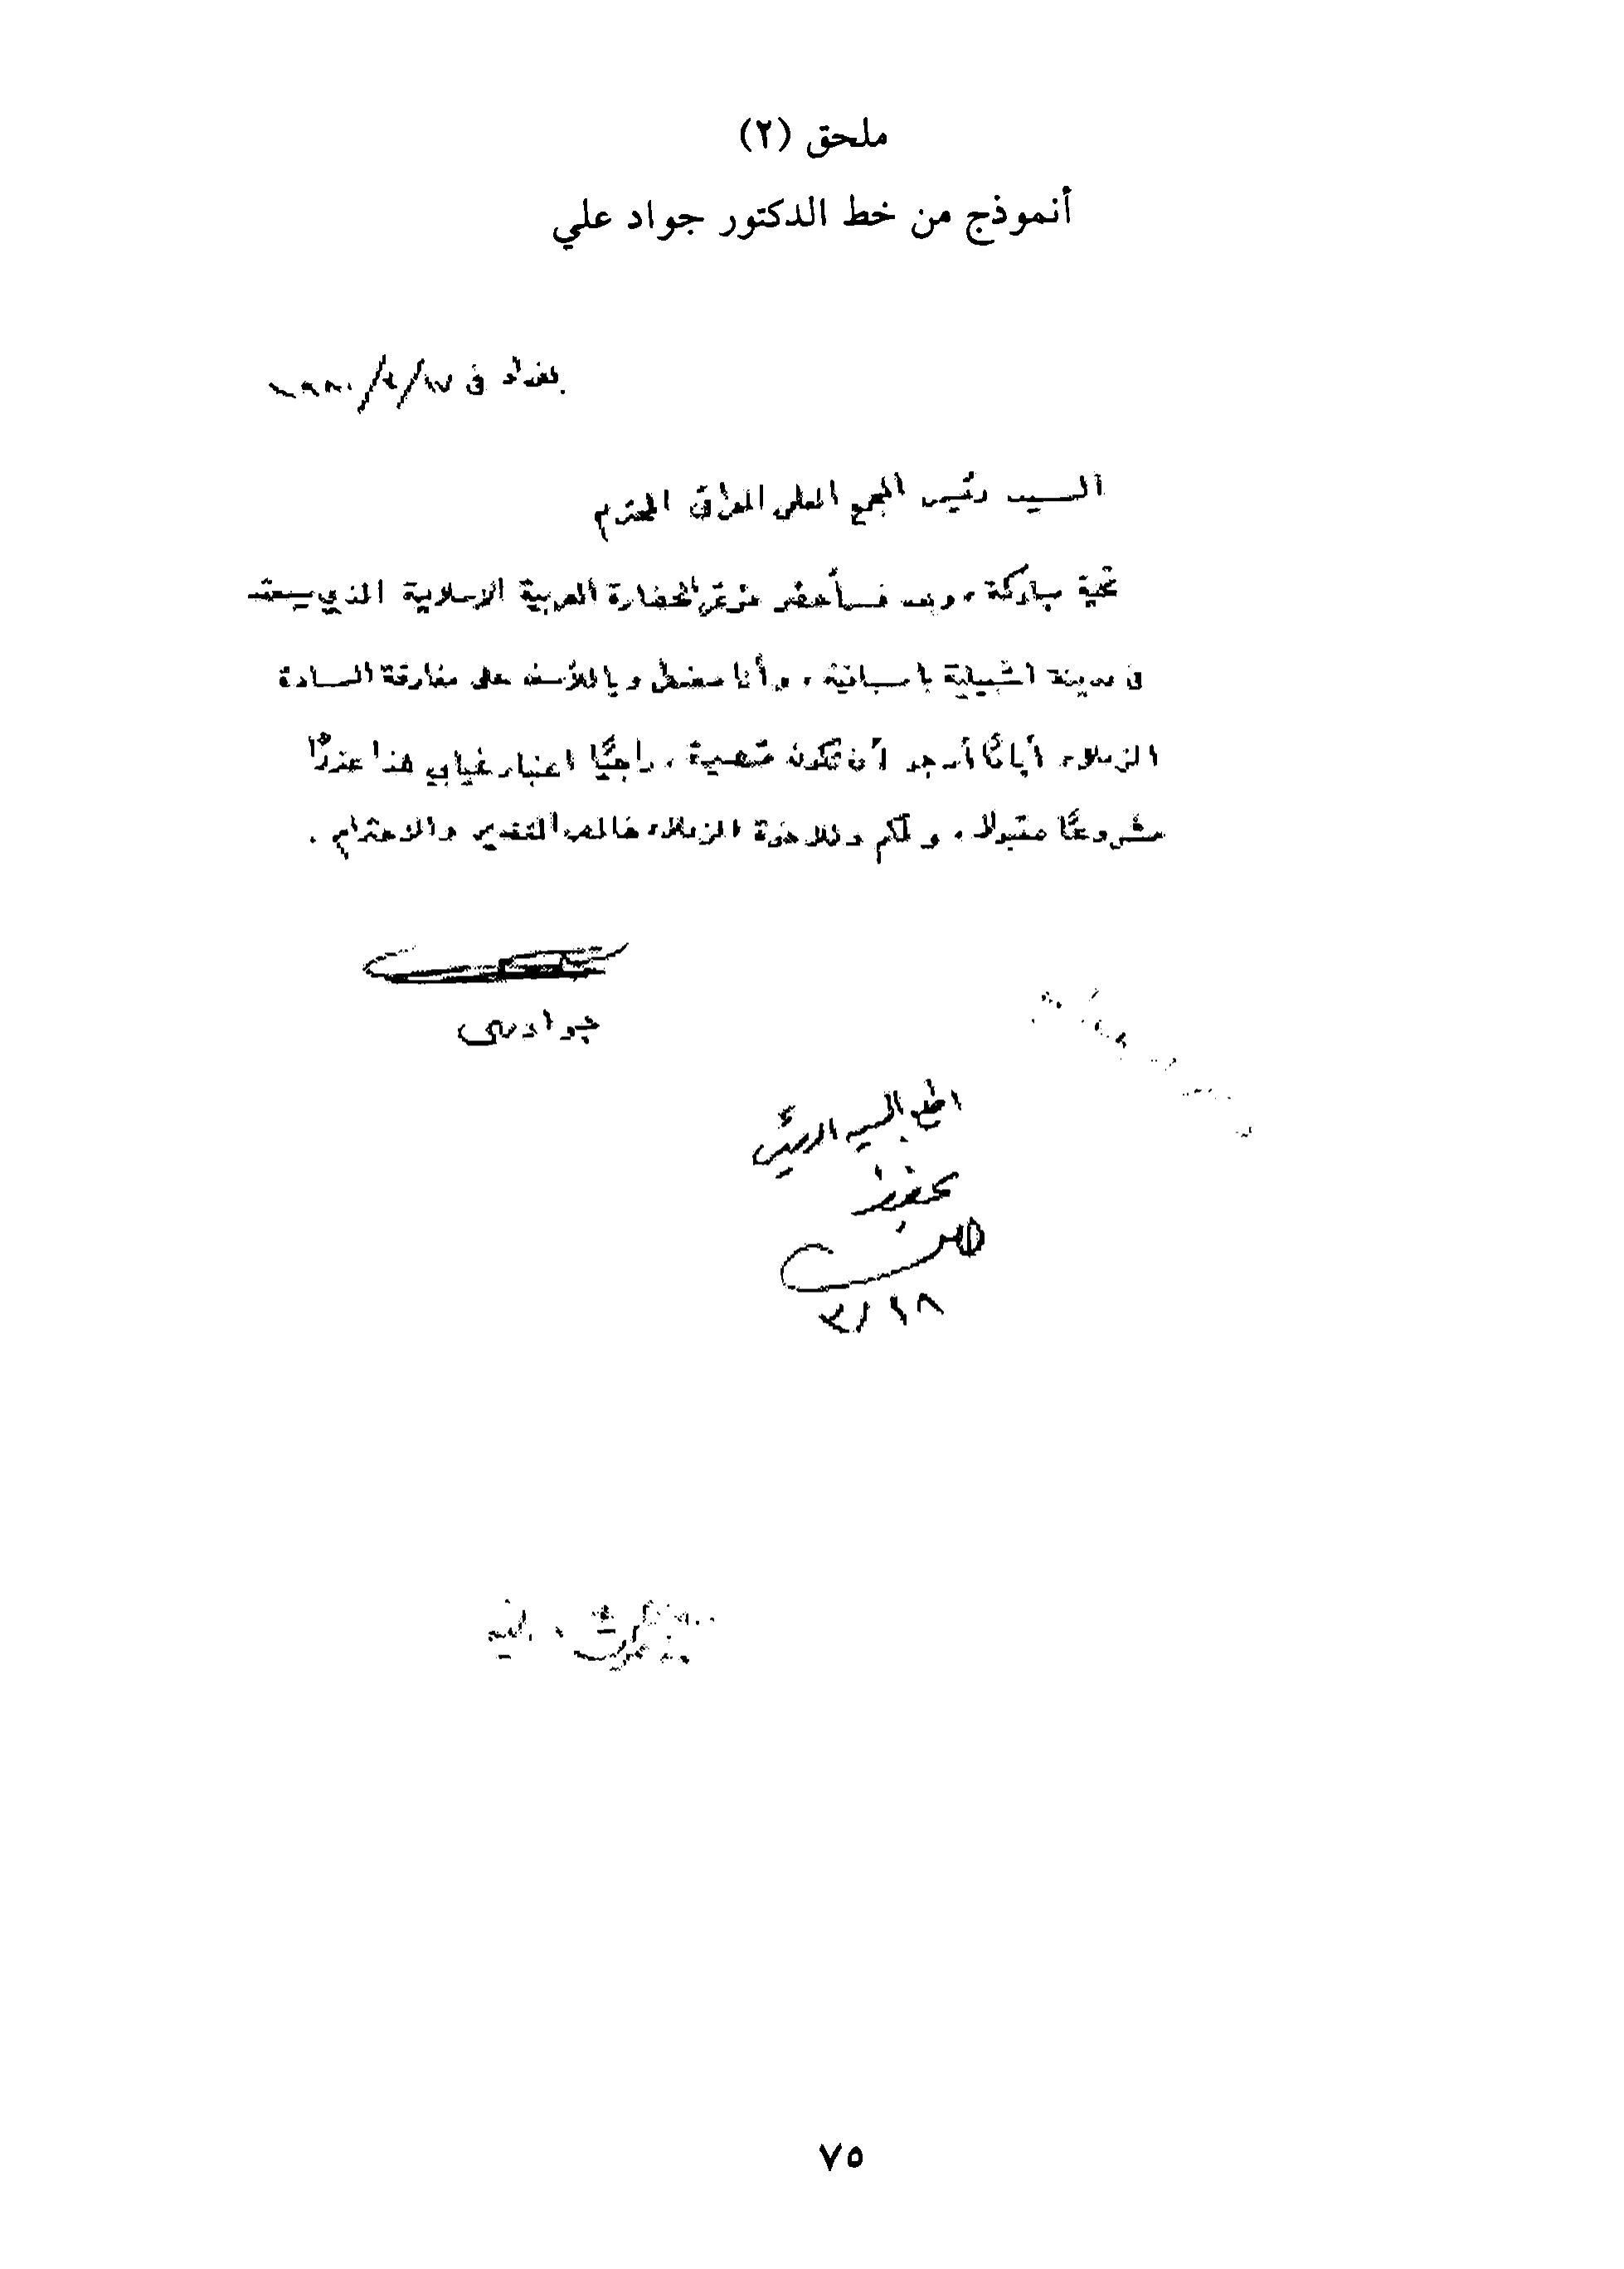 ملحق (٢)
أنموذج من خط الدكتور جواد علي
بغداد في ١٧/٣/١٩٨٠
السيد رئيس المجمع العلمي العراقي المحترم
تحية مباركة، وبعد فسأحضر مؤتمر الحضارة العربية الإسلامية الذي سيعقد
في مدينة اشبيلية باسبانية، وأنا مضطر وياللأسف على مفارقة السادة
الزملاء أيامًا أرجو أن تكون قصيرة، راجيًا اعتبار غيابي هذا عذرًا
مشروعًا مقبولا، ولكم وللاخوة الزملاء خالص التقدير والاحترام.
جواد علي
اطلع السيد الرئيس
يحفظ
٣/١٨
٧٥